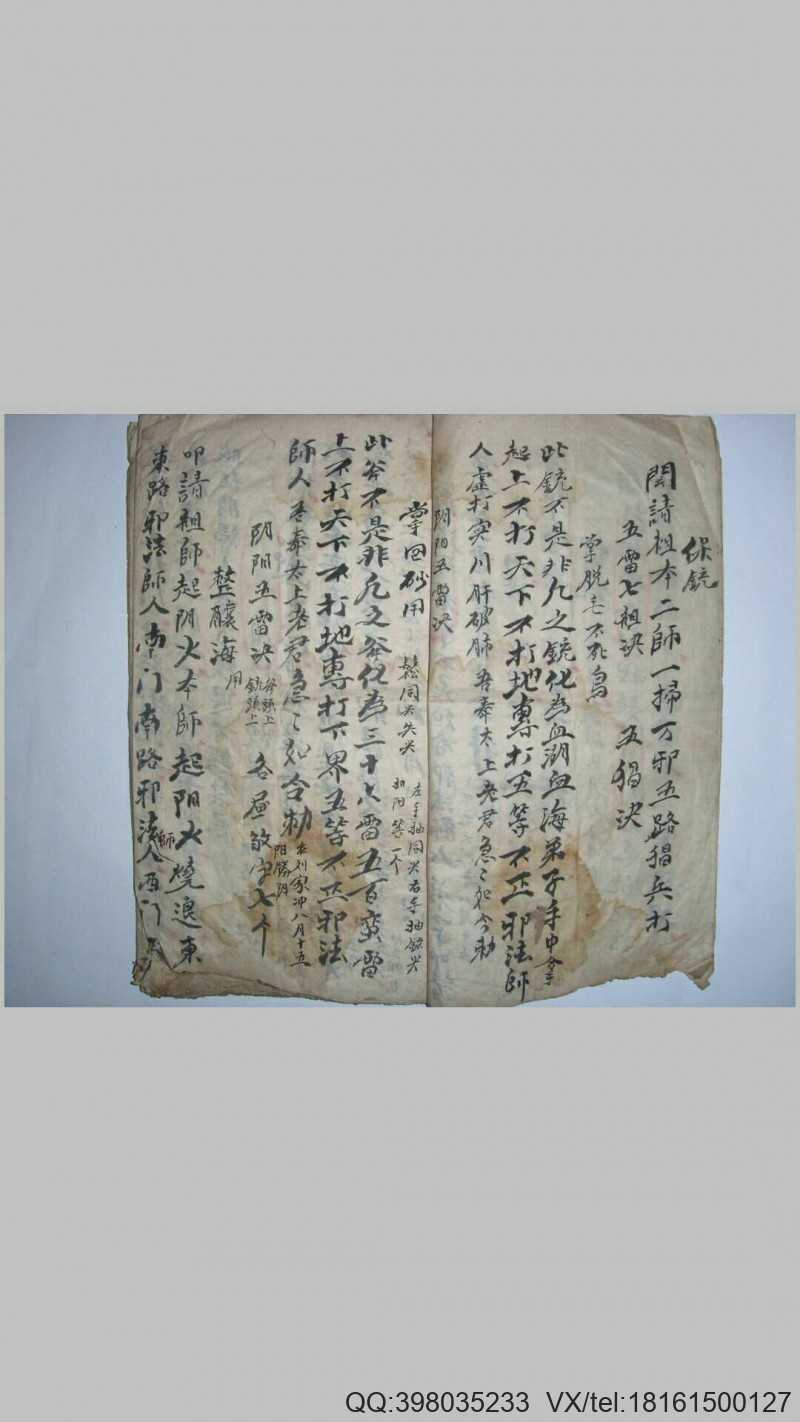 保銃
閗請祖本二師一掃万邪五路猖兵打
五雷七祖決 五猖決
掌脱毛不死鳥
此銃不是非凡之銃化為血湖血海弟子手中拿
起上不打天下不打地專打五等不正邪法師
人虚打实川肝破肺吾奉太上老君急〻如令勅
阴阳五雷决
掌回砂用 鬆同 左手抽同 右手抽
和阳等一个
此斧不是非凡之斧化為三十六雷五百蛮雷
上不打天下不打地專打下界五等不正邪法
師人吾奉太上老君急〻如令勅 冲八月十五
阴阳五雷决 斧頭上 銃頭上 各 字七个
整釀海用
叩請祖師起阴火本師起阳火燒退東
東路邪法師人南门南路邪法師人西门
QQ:398035233 VX/tel:18161500127